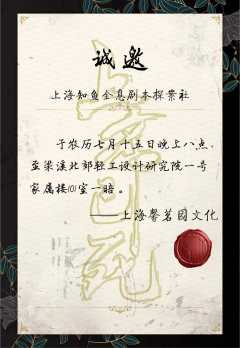 诚邀
上海知鱼全息剧本探案社
于农历七月十五日晚上八点,
至梁溪北郊轻工设计研究院一号
家属楼101室一晤。
——上海馨茗园文化